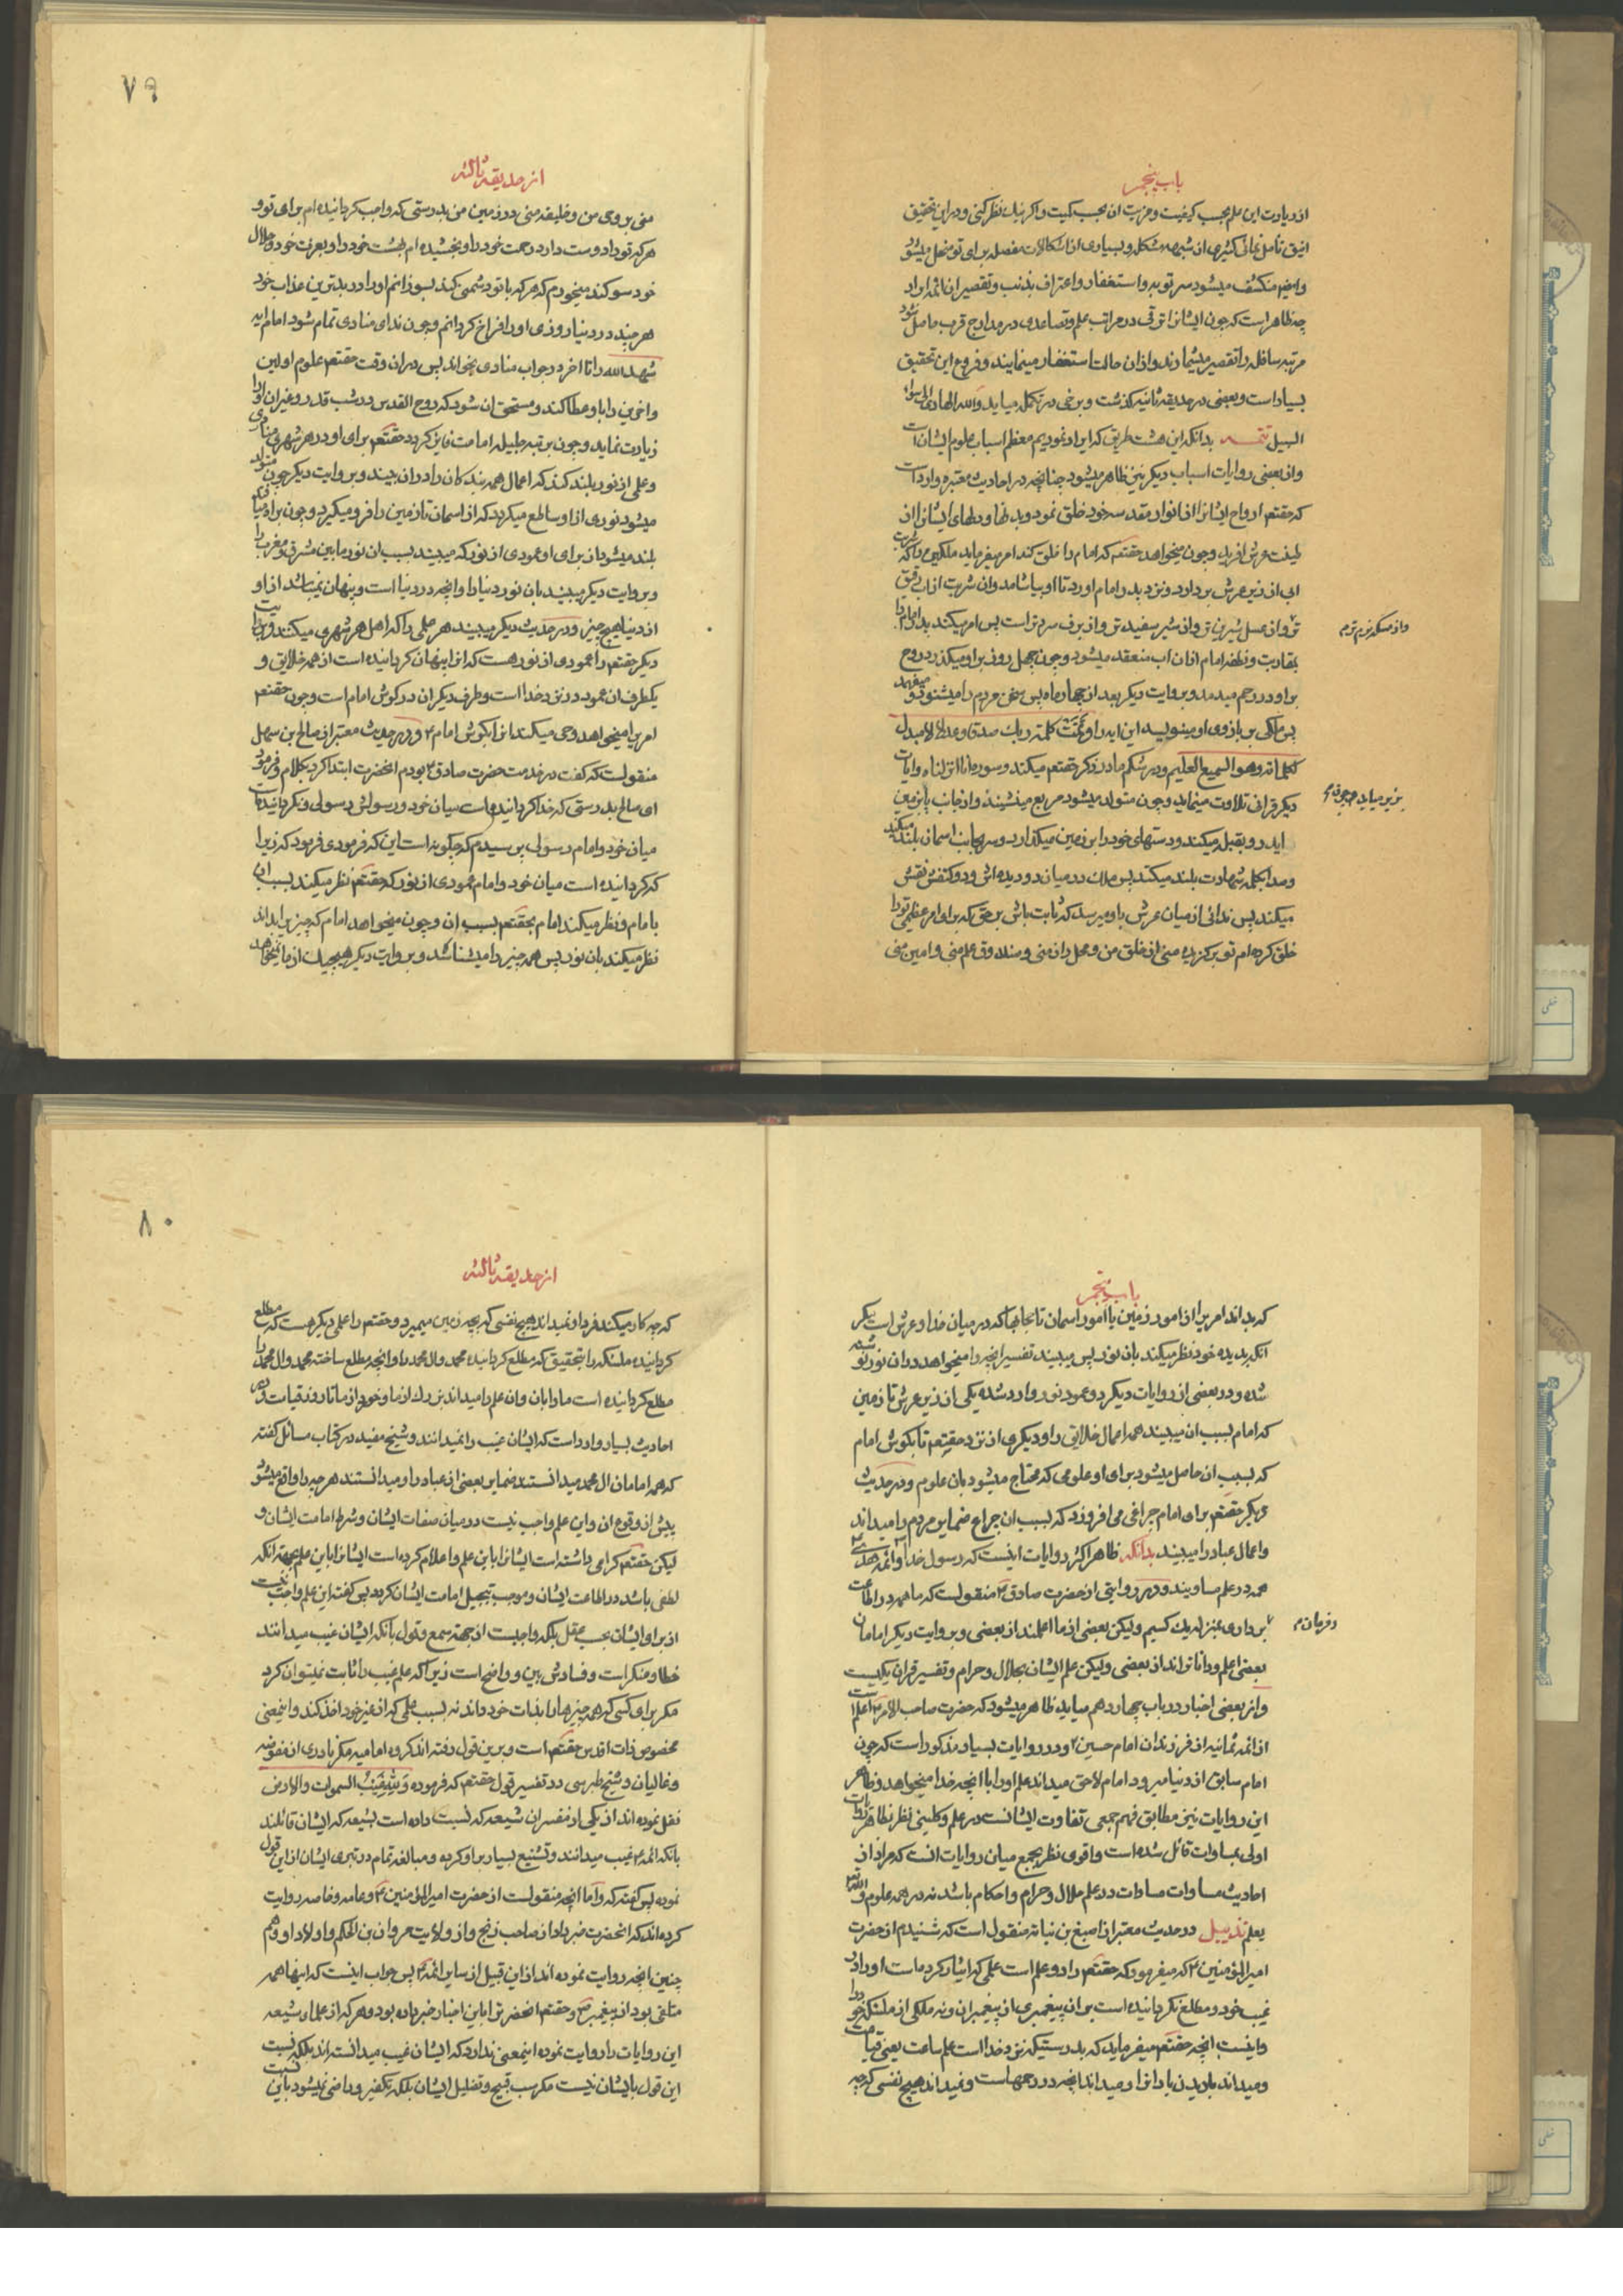 باب پنجم
از زیادت این علم بحسب کیفیت و مزیت آن بحسب کمیت و اگر نیک نظر کنی و در این تحقیق
انیق تأمل نمائی کثیری از شبهه مشکله و بسیاری از اشکالات مفصله برای تو منحل میشود
و ایضا منکشف میشود سر توبه و استغفار و اعتراف بذنب و تقصیر از ائمه اولاد
چه ظاهر است که چون ایشانرا ترقی در مراتب علم و تصاعدی در مدارج قرب حاصل شود
مرتبه سافله را تقصیر میشمارند و از آن حالت استغفار مینمایند و فروع این تحقیق
بسیار است و بعضی در حدیقه ثانیه گذشت و برخی در تکمله میاید والله الهادی الی سواء
السبیل تتمه بدانکه این هشت طریق که ایراد نمودیم معظم اسباب علوم ایشان است
و از بعضی روایات اسباب دیگر نیز ظاهر میشود چنانچه در احادیث معتبره وارد است
که حقتعالی ارواح ایشانرا از انوار مقدسه خود خلق نمود و بدنها و دلهای ایشانرا از
طینت عرش افرید و چون میخواهد حقتعم که امام را خلق کند امر میفرماید ملکی را که شربت
ابی از زیر عرش بر دارد و نزد پدر امام اورد تا او بیاشامد و آن شربت از آب رقیق
تر و از عسل شیرین تر و از شیر سفید تر و از برف سرد تر است پس امر میکند پدر امام را
و از مسکه نرم تر م
بمقاربت و نطفه امام از آن اب منعقد میشود و چون چهل روز بر او میگذرد روح
بر او در رحم میدمد و بروایت دیگر بعد از چهار ماه پس سخن مردم را میشنود و میفهمد
پس ملکی بر بازوی او مینویسد این ایه را و تمت کلمة ربک صدقا و عدلا لا مبدل
لکلماته و هو السمیع العلیم و در شکم مادر ذکر حقتعم میکند و سوره انا انزلناه و ایات
دیگر قرانی تلاوت مینماید و چون متولد میشود مربع مینشیند و از جانب پا بزمین
بزیر میاید و چون م
اید رو بقبله میکند و دستهای خود را بر زمین میگذارد و سر بجانب اسمان بلند میکند
و صدا بکلمه شهادت بلند میکند پس ملک در میان دو دیده اش و دو کتفش نقش
میکند پس ندائی از میان عرش باو میرسد که ثابت باش بر حق که برای امر عظیمی تو را
خلق کرده ام تو برگزیده منی از خلق من و محل راز منی و صندوق علم منی و امین منی
۷۹
از حدیقه ثالثه
منی بر وحی من و خلیفه منی در زمین من بدرستی که واجب گردانیده ام برای تو و
هر که تو را دوست دارد رحمت خود را و بخشیده ام بهشت خود را و بعزت خود و جلال
خود سوگند میخورم که هر که با تو دشمنی کند بسوزانم او را در بدترین عذاب خود
هر چند در دنیا روزی او را فراخ گردانم و چون ندای منادی تمام شود امام ایه
شهد الله را تا اخر در جواب منادی بخواند پس در ان وقت حقتعم علوم اولین
و اخرین را باو عطا کند و مستحق ان شود که روح القدس در شب قدر و غیر ان او را
زیارت نماید و چون برتبه جلیله امامت فایز گردد حقتعم برای او در هر شهری مناری
و علمی از نور بلند کند که اعمال همه بندگان را در ان بیند و بروایت دیگر چون متولد
میشود نوری از او ساطع میگردد که از اسمان تا زمین را فرو میگیرد و چون براه میافتد
بلند میشود از برای او عمودی از نور که میبیند بسبب ان نور مابین مشرق و مغرب را
و بروایت دیگر میبیند بان نور دنیا را و انچه در دنیا است و پنهان نمیباشد از او
از دنیا هیچ چیز و در حدیث دیگر میبیند هر عملی را که اهل هر شهری میکنند و بروایت
دیگر حقتعم را عمودی از نور هست که انرا پنهان گردانیده است از همه خلایق و
یکطرف ان عمود در نزد خدا است و طرف دیگر ان در گوش امام است و چون حقتعم
امریرا میخواهد وحی میکند انرا بگوش امام ع و در حدیث معتبر از صالح بن سهل
منقولست که گفت در خدمت حضرت صادق ع بودم انحضرت ابتدا کرد بکلام و فرمود
ای صالح بدرستی که خدا گردانیده است میان خود و رسولش رسولی و نگردانیده است
میان خود و امام رسولی پرسیدم که چگونه است این که فرمودی فرمود که زیرا
که گردانیده است میان خود و امام عمودی از نور که حقتعم نظر میکند بسبب ان
با امام و نظر میکند امام بحقتعم بسبب ان و چون میخواهد امام که چیزیرا بداند
نظر میکند بان نور پس همه چیز را میشناسد و بروایت دیگر هیچیک از ما نمیخواهد
باب پنجم
که بداند امریرا از امور زمین یا امور اسمان تا حجابها که در میان خدا و عرش است مگر
انکه بدیده خود نظر میکند بان نور پس میبیند تفسیر انچه را میخواهد در ان نور نوشته
شده و در بعضی از روایات دیگر دو عمود نور وارد شده یکی از زیر عرش تا زمین
که امام بسبب ان میبیند همه اعمال خلایق را و دیگری از نزد حقتعم تا بگوش امام
که بسبب ان حاصل میشود برای او علومی که محتاج میشود بان علوم و در حدیث
دیگر حقتعم برای امام چراغی می افروزد که بسبب ان چراغ ضمایر مردم را میداند
و اعمال عباد را میبیند بدانکه ظاهر اکثر روایات اینست که رسول خدا و ائمه هدی
همه در علم مساویند و در روایتی از حضرت صادق ع منقولست که ما همه در اطاعت
و فرمان م
برداری بمنزله یک کسیم ولیکن بعضی از ما اعلمند از بعضی و بروایت دیگر امامان
بعضی اعلم و داناترند از بعضی ولیکن علم ایشان بحلال و حرام و تفسیر قران یکیست
و از بعضی اخبار در باب چهاردهم میاید ظاهر میشود که حضرت صاحب الامر ع اعلم است
از ائمه ثمانیه از فرزندان امام حسین ع و در روایات بسیار مذکور است که چون
امام سابق از دنیا میرود امام لاحق میداند علم او را با انچه خدا میخواهد و ظاهر
این روایات نیز مطابق فهم جمعی تفاوت ایشانست در علم و کلینی نظر بظاهر روایات
اولی بمساوات قائل شده است و اقوی نظر بجمع میان روایات انست که مراد از
احادیث مساوات مساوات در علم حلال و حرام و احکام باشد نه در همه علوم والله
یعلم تذییل در حدیث معتبر از اصبغ بن نباته منقول است که شنیدم از حضرت
امیر المؤمنین ع که میفرمود که حقتعم را دو علم است علمی که ایثار کرده است او را در
غیب خود و مطلع نگردانیده است بر ان پیغمبری از پیغمبران و نه ملکی از ملئکه خود را
و اینست انچه حقتعم میفرماید که بدرستیکه نزد خدا است علم ساعت یعنی قیامت
و میداند باریدن بارانرا و میداند انچه در رحمها است و نمیداند هیچ نفسی که چه
۸۰
از حدیقه ثالثه
که چه کار میکند فردا و نمیداند هیچ نفسی که بچه زمین میمیرد و حقتعم را علمی دیگر هست که مطلع
گردانیده ملئکه را بتحقیق که مطلع گردانیده محمد و ال محمد را و انچه مطلع ساخته محمد و ال محمد را
مطلع گردانیده است ما را بان و ان علم را میداند بزرگ از ما و خورد از ما تا روز قیامت و در
احادیث بسیار وارد است که ایشان غیب را نمیدانند و شیخ مفید در کتاب مسائل گفته
که همه امامان ال محمد میدانستند ضمایر بعضی از عباد را و میدانستند هر چه را واقع میشود
پیش از وقوع ان و این علم واجب نیست در میان صفات ایشان و شرط امامت ایشان و
لیکن حقتعم گرامی داشته است ایشانرا باین علم و اعلام کرده است ایشانرا باین علم بجهة انکه
لطفی باشد در اطاعت ایشان و موجب تبجیل امامت ایشان گردد پس گفته این علم واجب نیست
از برای ایشان بحسب عقل بلکه واجبست از جهة سمع و قول بانکه ایشان غیب میدانند
خطا و منکر است و فسادش بین و واضح است زیرا که علم غیب را ثابت نمیتوان کرد
مگر برای کسی که همه چیزها را بذات خود داند نه بسبب علمی که از غیر خود اخذ کند و اینمعنی
مخصوص ذات اقدس حقتعم است و برین قول رفته اند گروه امامیه مگر نادری از مفوضه
و غالیان و شیخ طبرسی در تفسیر قول حقتعم که فرموده و لله غیب السموات والارض
نقل نموده اند از یکی از مفسران شیعه که نسبت داده است بشیعه که ایشان قائلند
بانکه ائمه ع غیب میدانند و تشنیع بسیار بر او کرده و مبالغه تمام در تبری ایشان از این قول
نموده پس گفته که و اما انچه منقولست از حضرت امیر المؤمنین ع و عامه و خاصه روایت
کرده اند که انحضرت خبر داد از صاحب زنج و از ولایت مروان بن الحکم و اولاد او و هم
چنین انچه روایت نموده اند از این قبیل از سایر ائمه ع پس جواب اینست که اینها همه
متلقی بود از پیغمبر ص و حقتعم انحضرترا باین اخبار خبر داده بود و هر که از علماء شیعه
این روایات را روایت نموده اینمعنی ندارد که ایشان غیب میدانسته اند بلکه نسبت
این قول بایشان نیست مگر سب قبیح و تضلیل ایشان بلکه تکفیر و راضی نمیشود باین نسبت